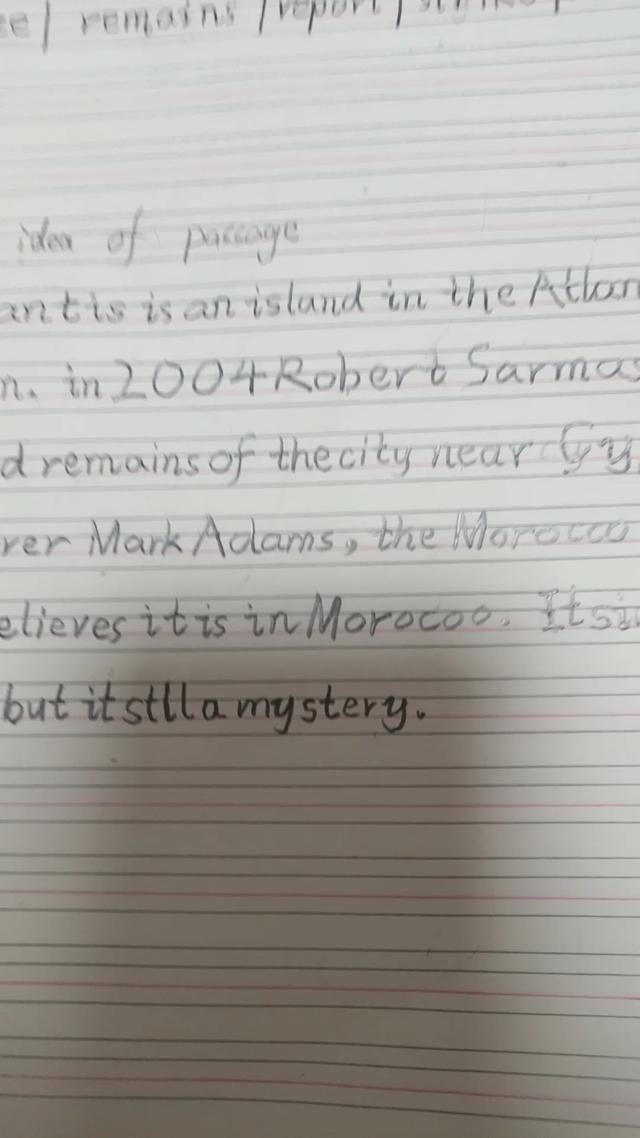 ee | remains | report |
idea of passage
antis is an island in the Atlan
n. in 2004 Robert Sarmas
d remains of the city near Cy
rer Mark Adams, the Morocco
elieves it is in Morocoo. It si
but it stlll a mystery.